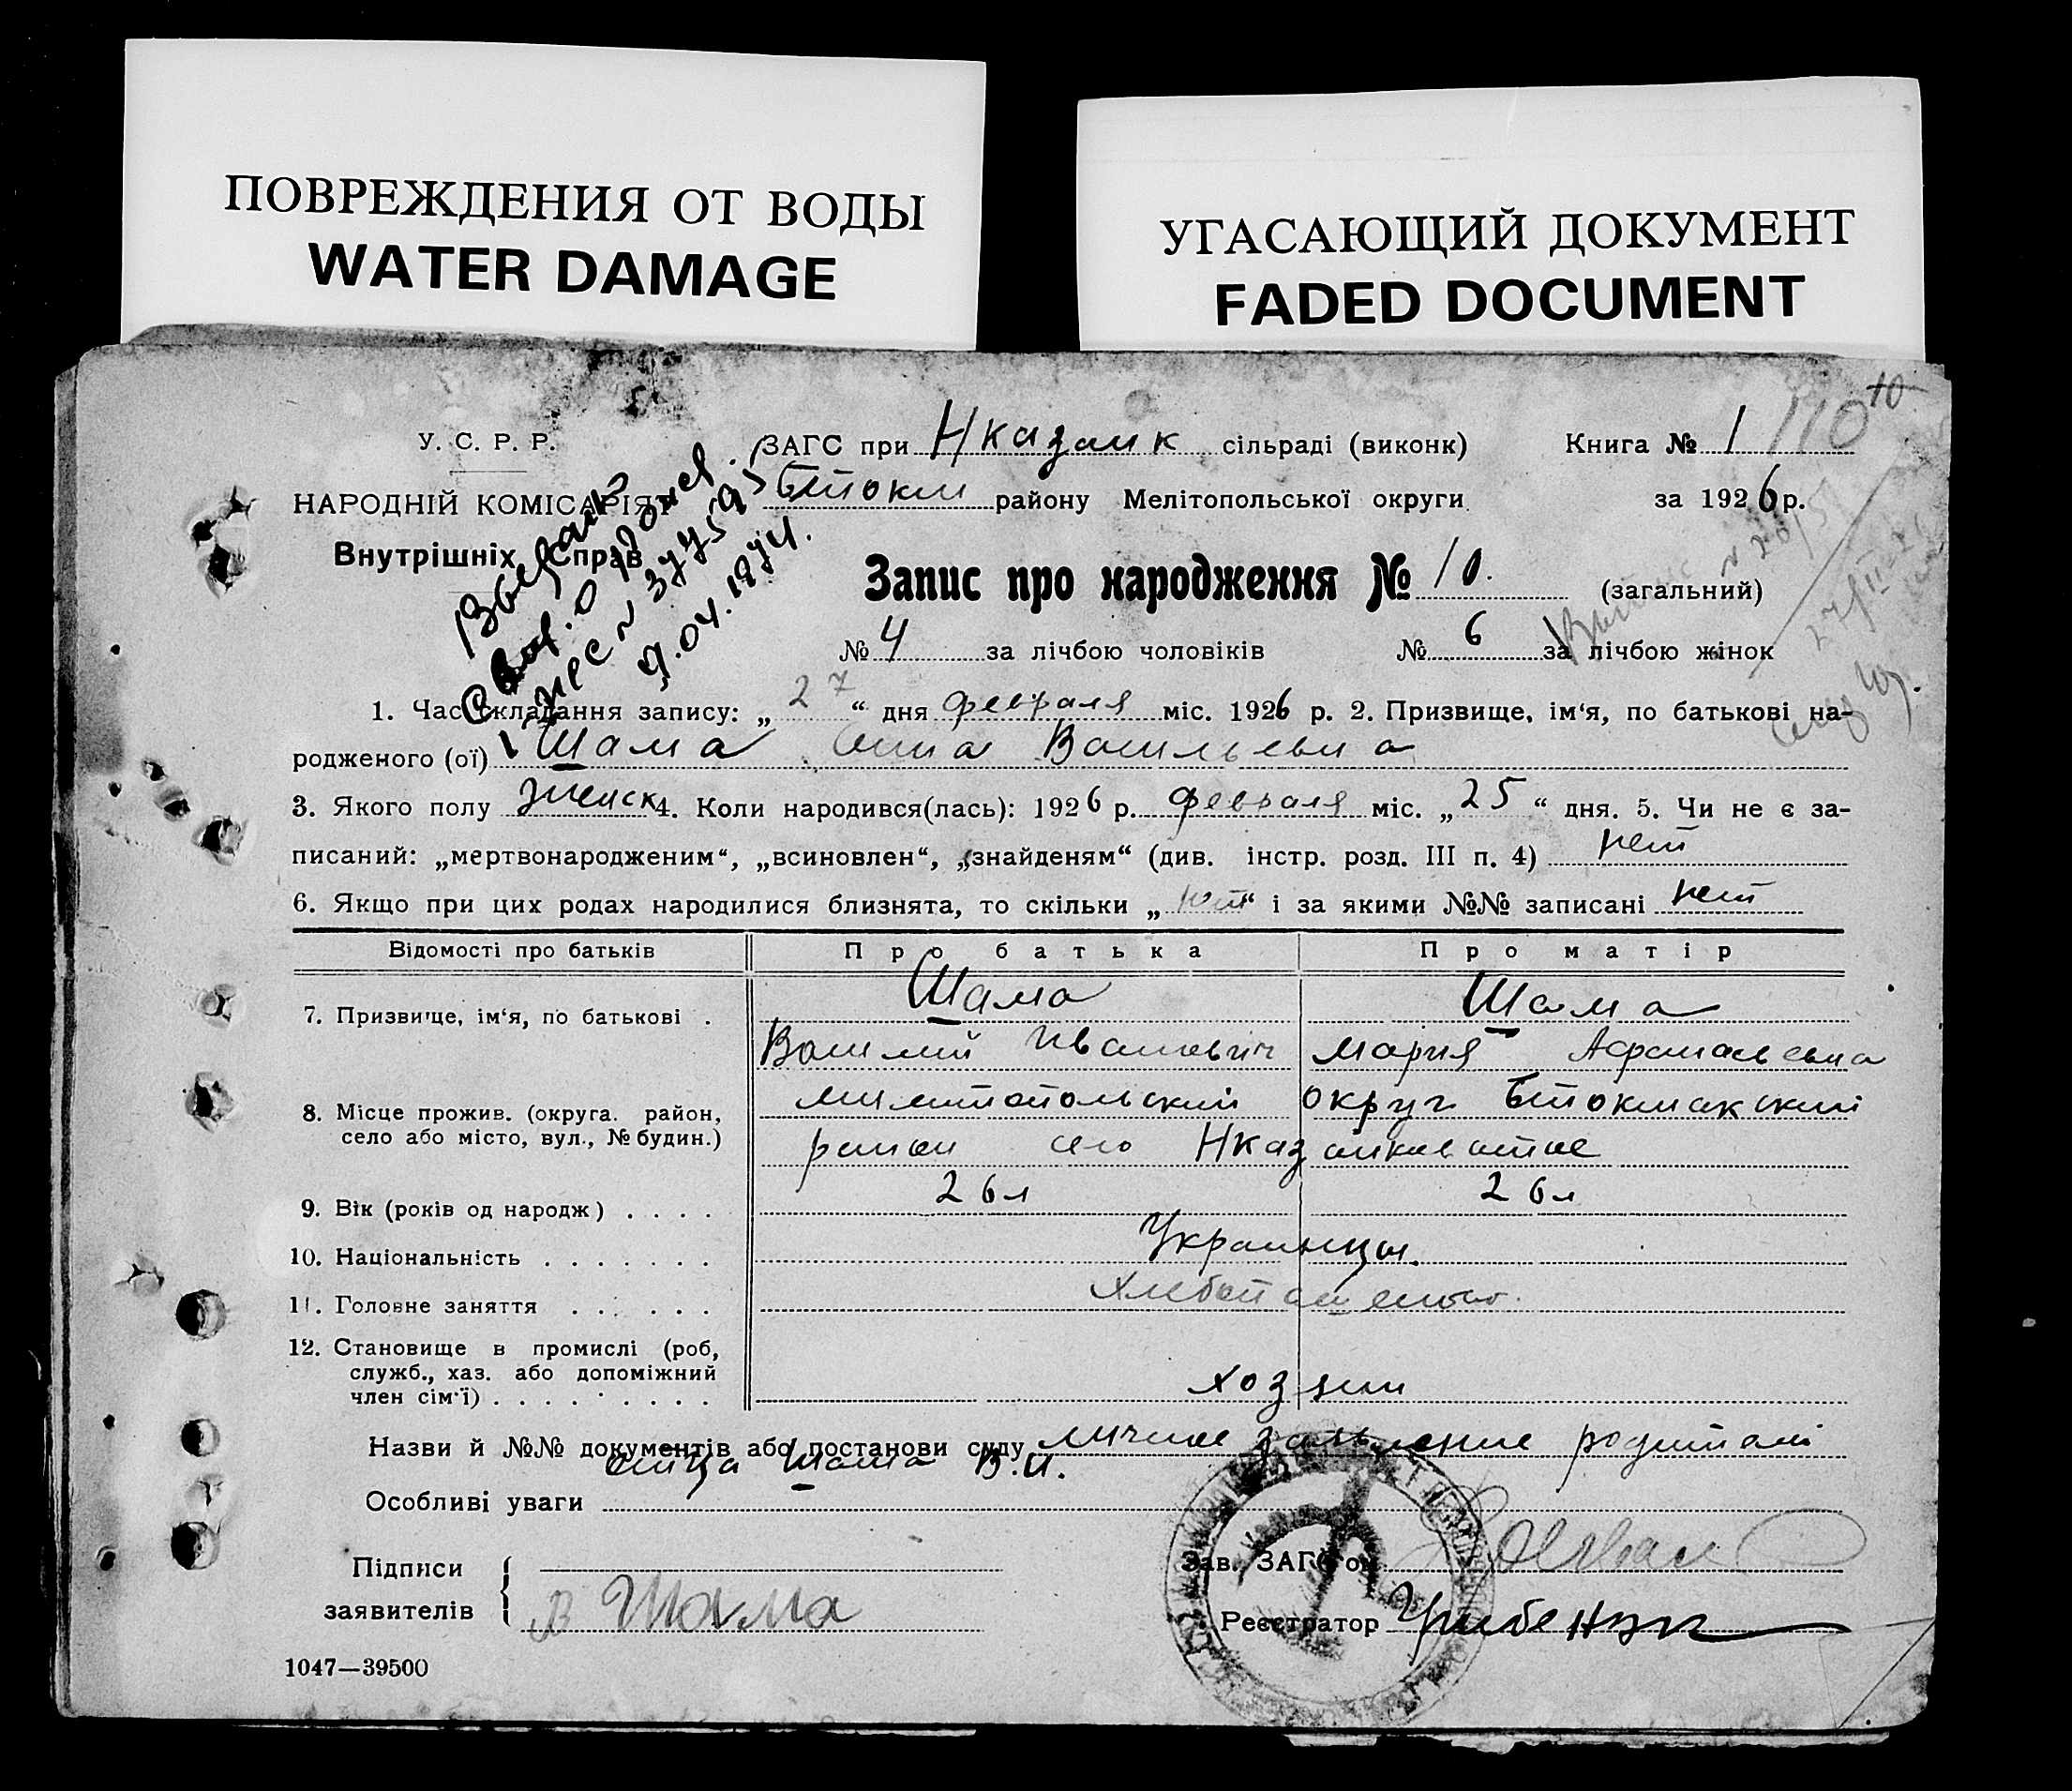 ПОВРЕЖДЕНИЯ ОТ ВОДЫ
WATER DAMAGE
УГАСАЮЩИЙ ДОКУМЕНТ
FADED DOCUMENT
10
110
У. С. Р. Р. ЗАГС при Нказанк сільраді (виконк) Книга № 1
НАРОДНІЙ КОМІСАРІЯТ Бтокм району Мелітопольської округи за 1926 р.
Внутрішніх Справ
Запис про народження № 10. (загальний)
№ 4 за лічбою чоловіків № 6 за лічбою жінок
1. Час складання запису: „ 27 “ дня февраля міс. 1926 р. 2. Призвище, ім‘я, по батькові на-
родженого (ої) Шама Анна Васильевна
3. Якого полу женск 4. Коли народився(лась): 1926 р. февраля міс. „ 25 “ дня. 5. Чи не є за-
писаний: „мертвонародженим“, „всиновлен“, „знайденям“ (див. інстр. розд. III п. 4) нет
6. Якщо при цих родах народилися близнята, то скільки „ нет “ і за якими №№ записані нет
Відомості про батьків Про батька Про матір
7. Призвище, ім‘я, по батькові . Шама Шама
Василий Иванович Мария Афанасьевна
8. Місце прожив. (округа. район, село або місто, вул., № будин.) округ Бтокмакский
село Нказанковатое
9. Вік (років од народж) . . . . 26 л 26 л
10. Національність . . . . . . . Украинцы.
11. Головне заняття . . . . . .
12. Становище в промислі (роб,
служб., хаз. або допоміжний
член сім‘ї) . . . . . . . . . хозяин
Назви й №№ документів або постанови суду личное заявление родителі
отца Шама В.И.
Особливі уваги
Підписи
заявителів В Шама
Зав. ЗАГС‘ом
Реєстратор
1047—39500
Выдано
свид. о рожд.
N 377595
9.04.1974.